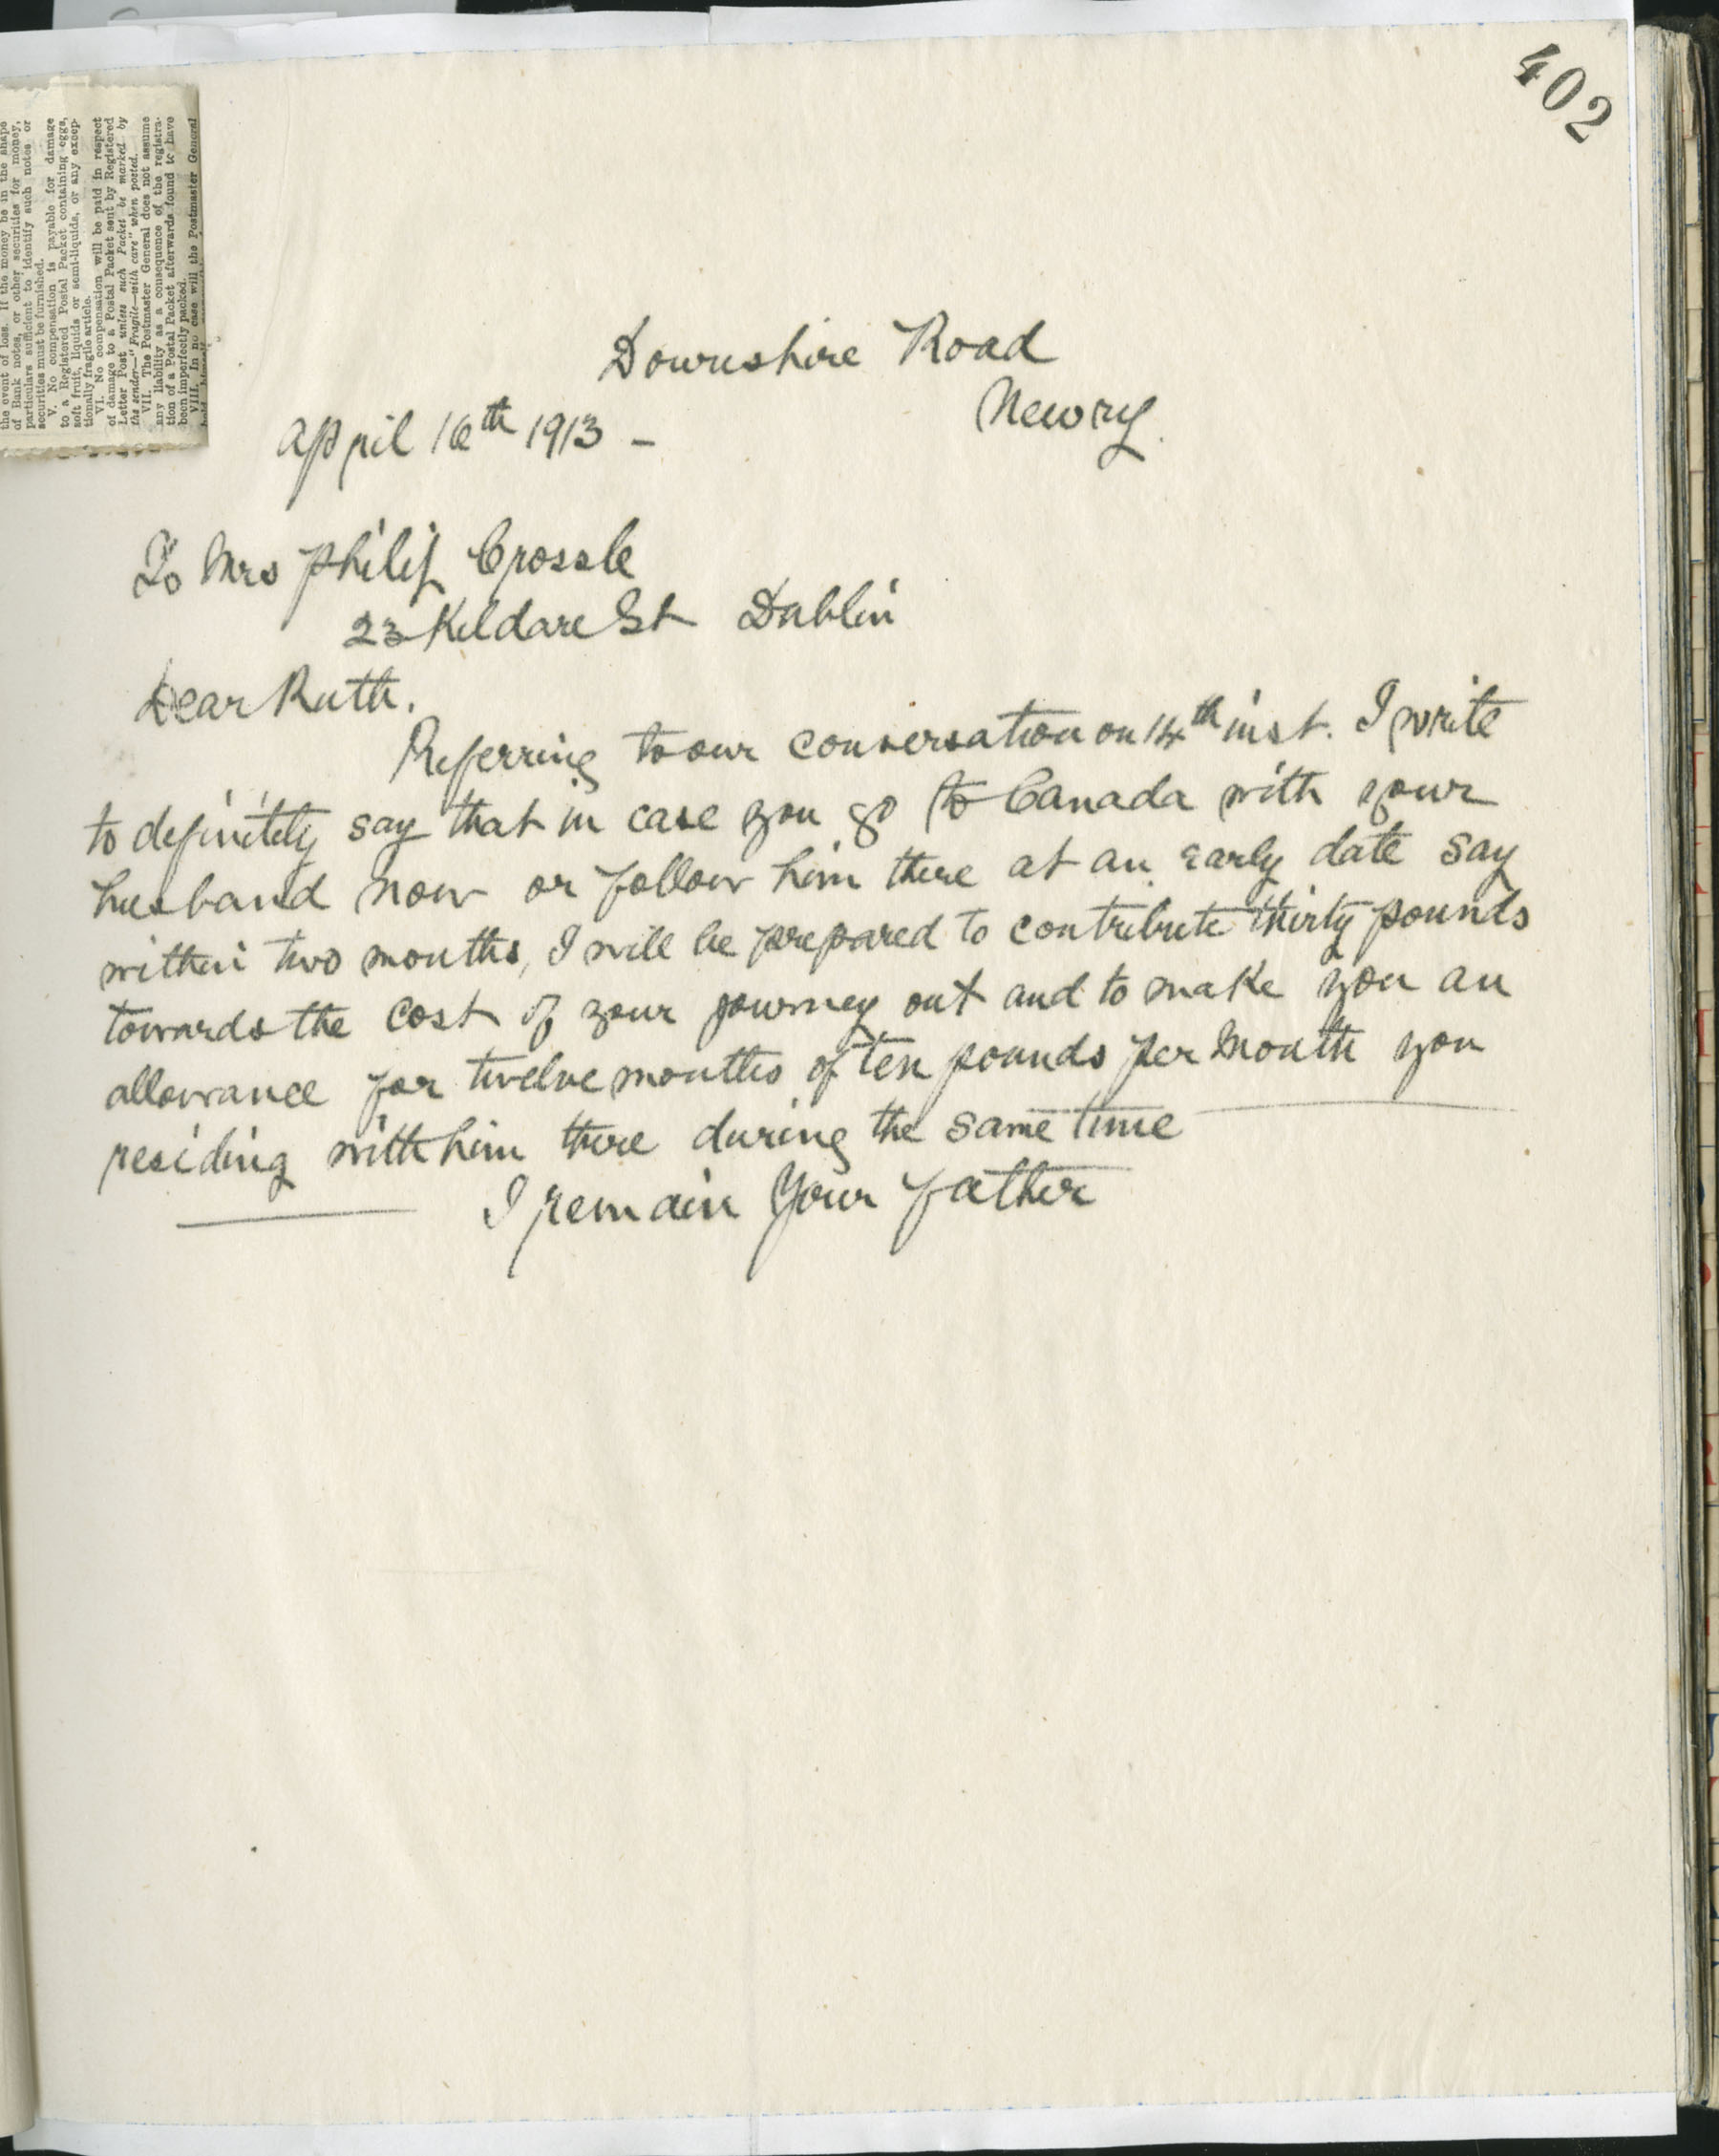 402
the event of loss. If the money be in the shape
of Bank notes, or other securities for money,
particulars sufficient to identify such notes or
securities must be furnished.
V. No compensation is payable for damage
to a Registered Postal Packet containing eggs,
soft fruit, liquids or semi-liquids, or any excep-
tionally fragile article.
VI. No compensation will be paid in respect
of damage to a Postal Packet sent by Registered
Letter Post unless such Packet be marked by
the sender—"Fragile—with care" when posted.
VII. The Postmaster General does not assume
any liability as a consequence of the registra-
tion of a Postal Packet afterwards found to have
been imperfectly packed.
VIII. In no case will the Postmaster General
Downshire Road
Newry.
April 16th 1913 –
To Mrs Philip Crossle
23 Kildare St Dublin
Dear Ruth.
Referring to our conversation on 14th inst. I write
to definitely say that in case you go to Canada with your
husband now or follow him there at an early date say
within two months, I will be prepared to contribute thirty pounds
towards the cost of your journey out and to make you an
allowance for twelve months of ten pounds per month you
residing with him there during the same time
I remain Your father